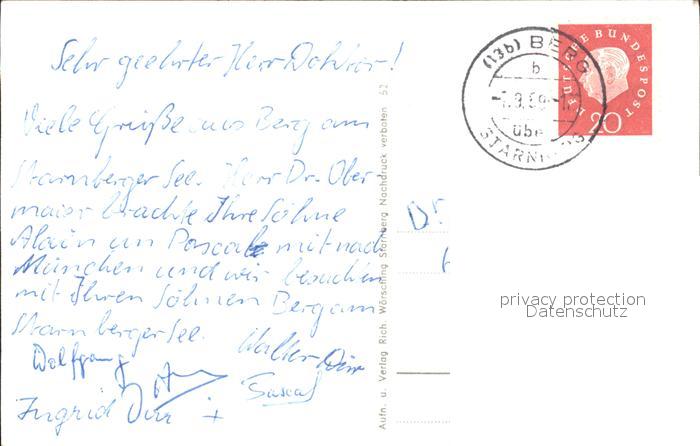 Sehr geehrter Herr Doktor!
Viele Grüße aus Berg am
Starnberger See. Herr Dr. Ober-
maier brachte Ihre Söhne
Alain un Pascal mit nach
München und wir besuchen
mit Ihren Söhnen Berg am
Starnberger See.
Wolfgang
Walter Dürr
Pascal
Ingrid Dürr
Aufn. u. Verlag Rich. Wörsching Starnberg Nachdruck verboten 52
(13b) BERG
b
übe
STARNBERG
DEUTSCHE BUNDESPOST
20
Dr
privacy protection
Datenschutz